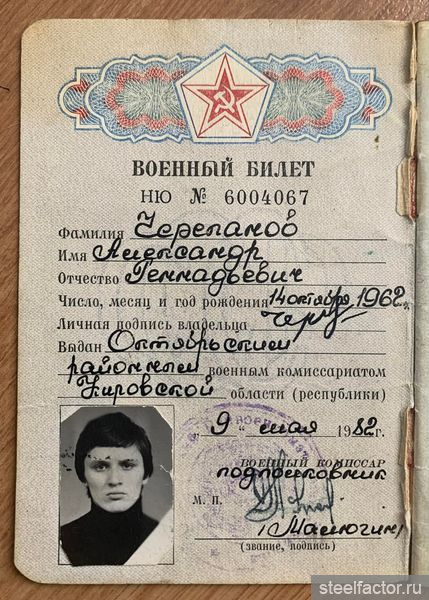 ВОЕННЫЙ БИЛЕТ
НЮ № 6004067
Фамилия Черепанов
Имя Александр
Отчество Геннадьевич
Число, месяц и год рождения 14 октября 1962 г.
Личная подпись владельца Чер
Выдан Октябрьским
районным военным комиссариатом
Кировской области (республики)
„9“ мая 1982 г.
ВОЕННЫЙ КОМИССАР
подполковник
М. П.
/Малюгин/
(звание, подпись)
steelfactor.ru